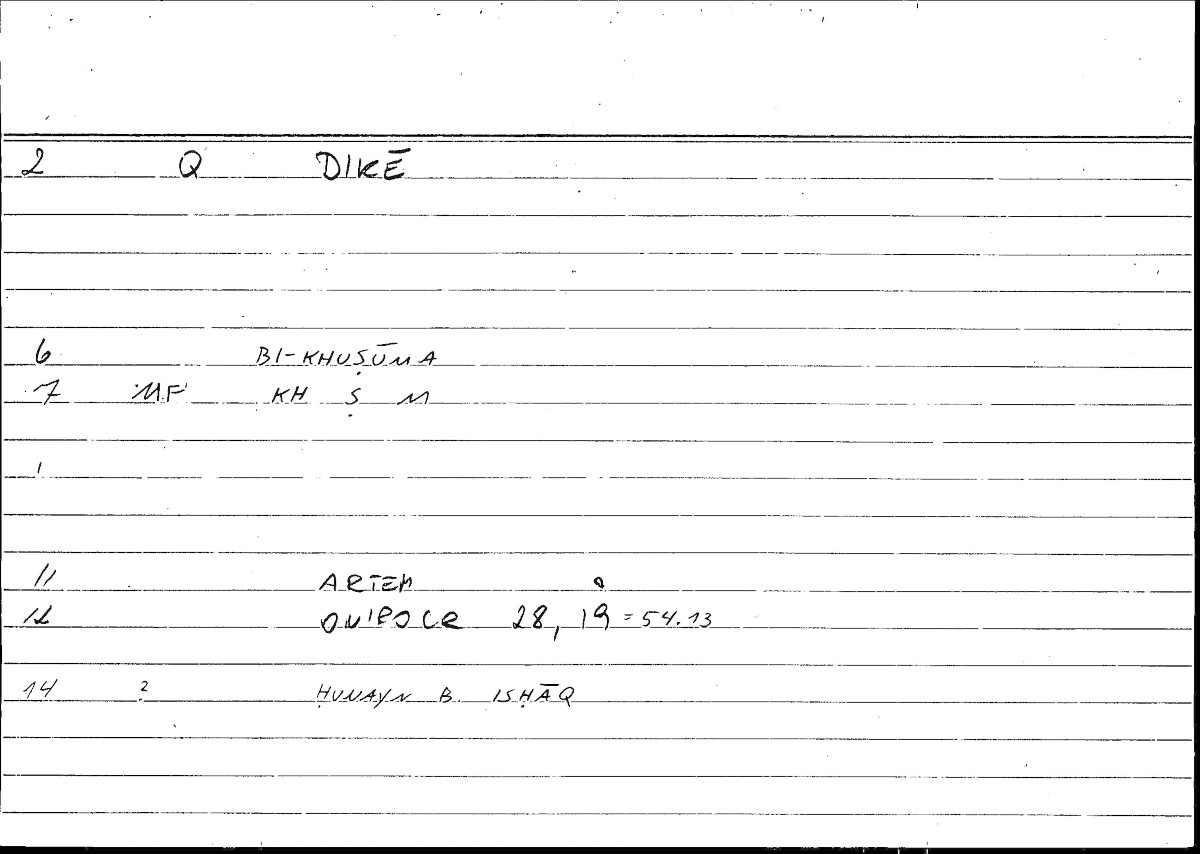 2 Q DIKĒ
6 BI-KHUṢŪMA
7 MF KH Ṣ M
11 ARTEM
12 ONIROCR 28, 19 = 54.13
14 ? ḤUNAYN B. ISḤĀQ